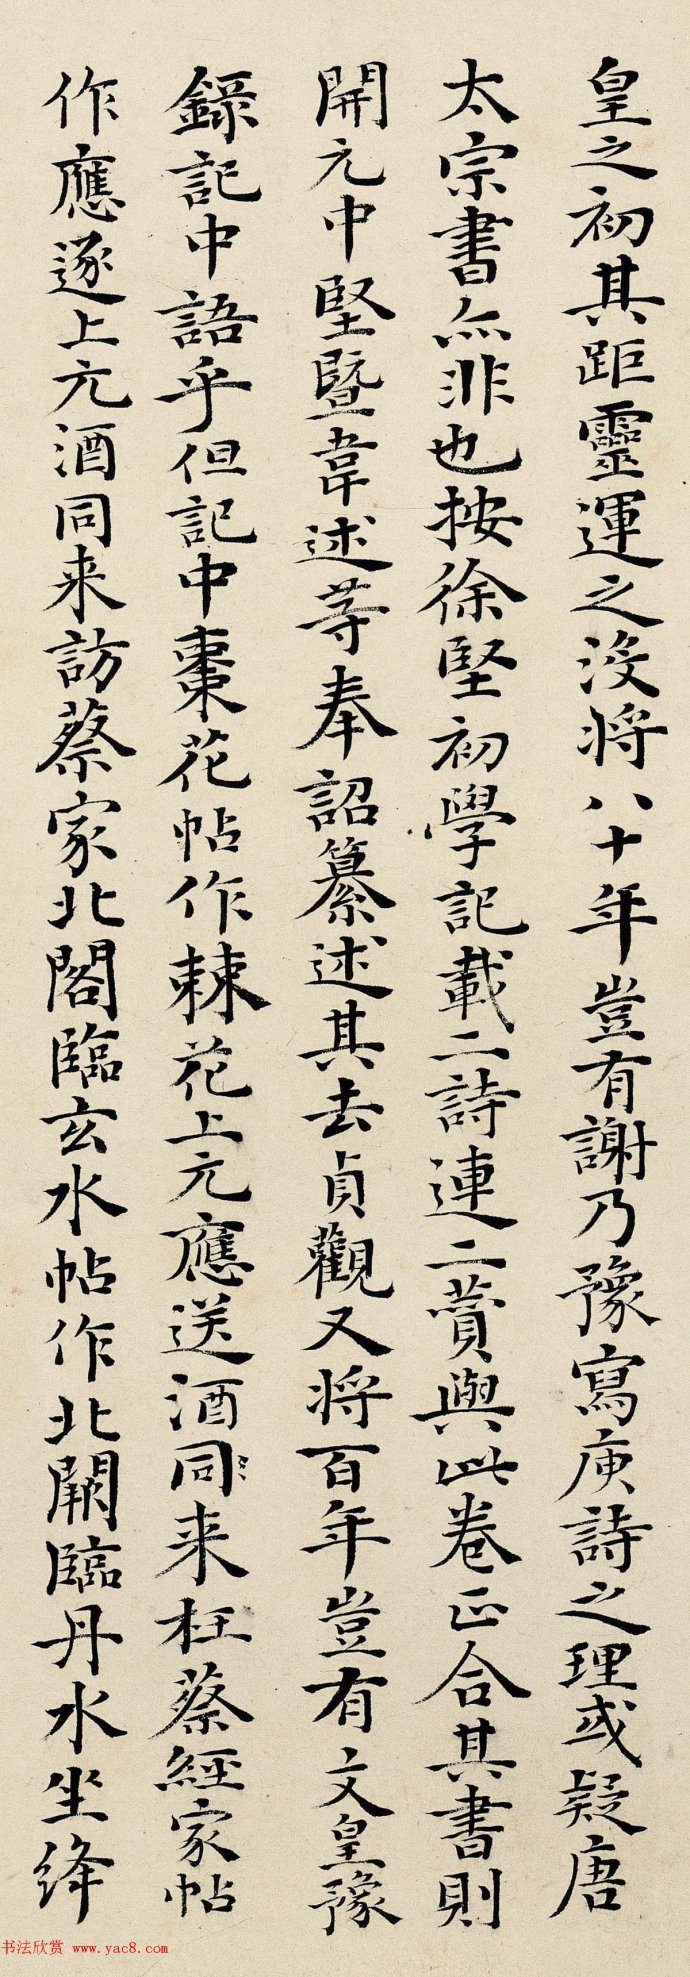 皇之初其距靈運之沒将八十年豈有謝乃豫寫庾詩之理或疑唐
太宗書亦非也按徐堅初學記載二詩連二賛與此卷正合其書則
開元中堅暨韋述等奉詔纂述其去貞觀又将百年豈有文皇豫
錄記中語乎但記中棗花帖作棘花上元應送酒同来枉蔡經家帖
作應逐上元酒同来訪蔡家北閣臨玄水帖作北闕臨丹水坐绛
书法欣赏 www.yac8.com